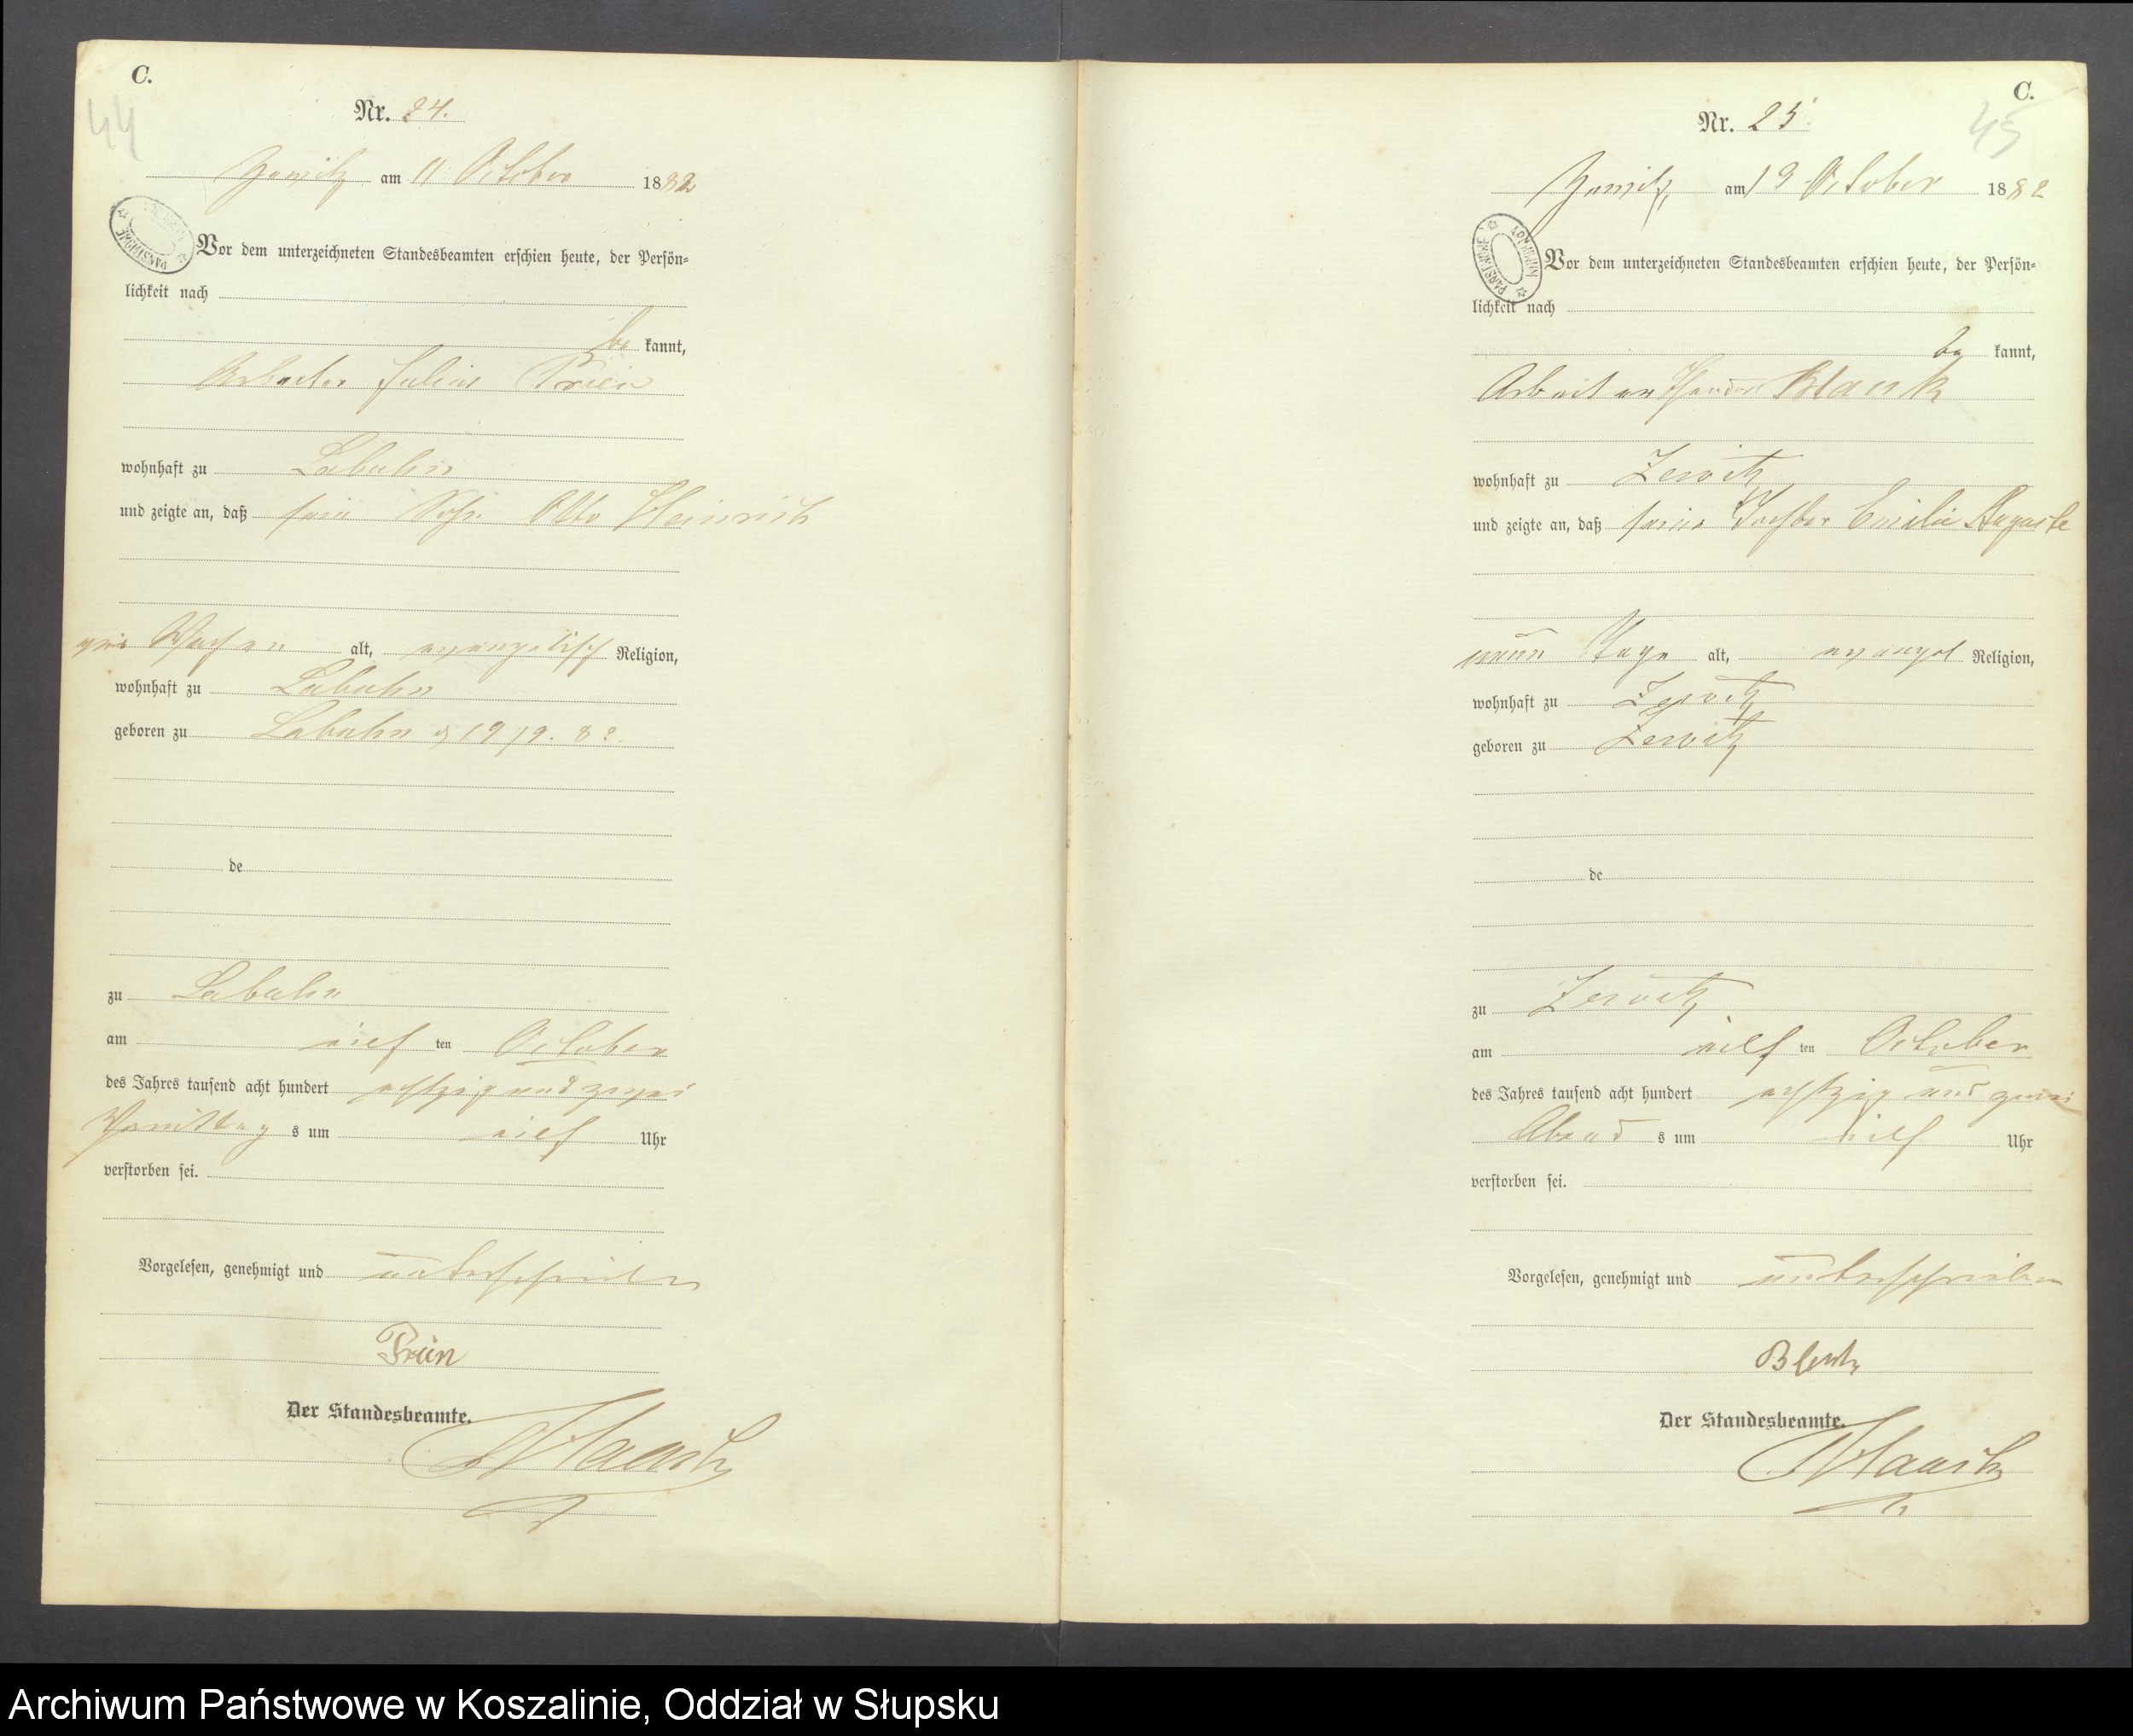 C.
44
Nr. 24.
am 11 October 1882
Vor dem unterzeichneten Standesbeamten erschien heute, der Persön-
lichkeit nach
be kannt,
Arbeiter Julius Prien
wohnhaft zu Labuhn
und zeigte an, daß sein Sohn Otto Heinrich
Wochen alt, evangelisch Religion,
wohnhaft zu Labuhn
geboren zu Labuhn 19/9. 82.
de
zu Labuhn
am ten October
des Jahres tausend acht hundert achtzig und zwei
Vormittag s um Uhr
verstorben sei.
Vorgelesen, genehmigt und unterschrieben
Prien
Der Standesbeamte.
C.
45
Nr. 25
am 19 October 1882
Vor dem unterzeichneten Standesbeamten erschien heute, der Persön-
lichkeit nach
be kannt,
Arbeiter Blank
wohnhaft zu Zewitz
und zeigte an, daß seine Tochter Emilie Auguste
neun Tage alt, evangel Religion,
wohnhaft zu Zewitz
geboren zu Zewitz
de
zu Zewitz
am ten October
des Jahres tausend acht hundert achtzig und zwei
Abend s um Uhr
verstorben sei.
Vorgelesen, genehmigt und unterschrieben
Der Standesbeamte.
Archiwum Państwowe w Koszalinie, Oddział w Słupsku